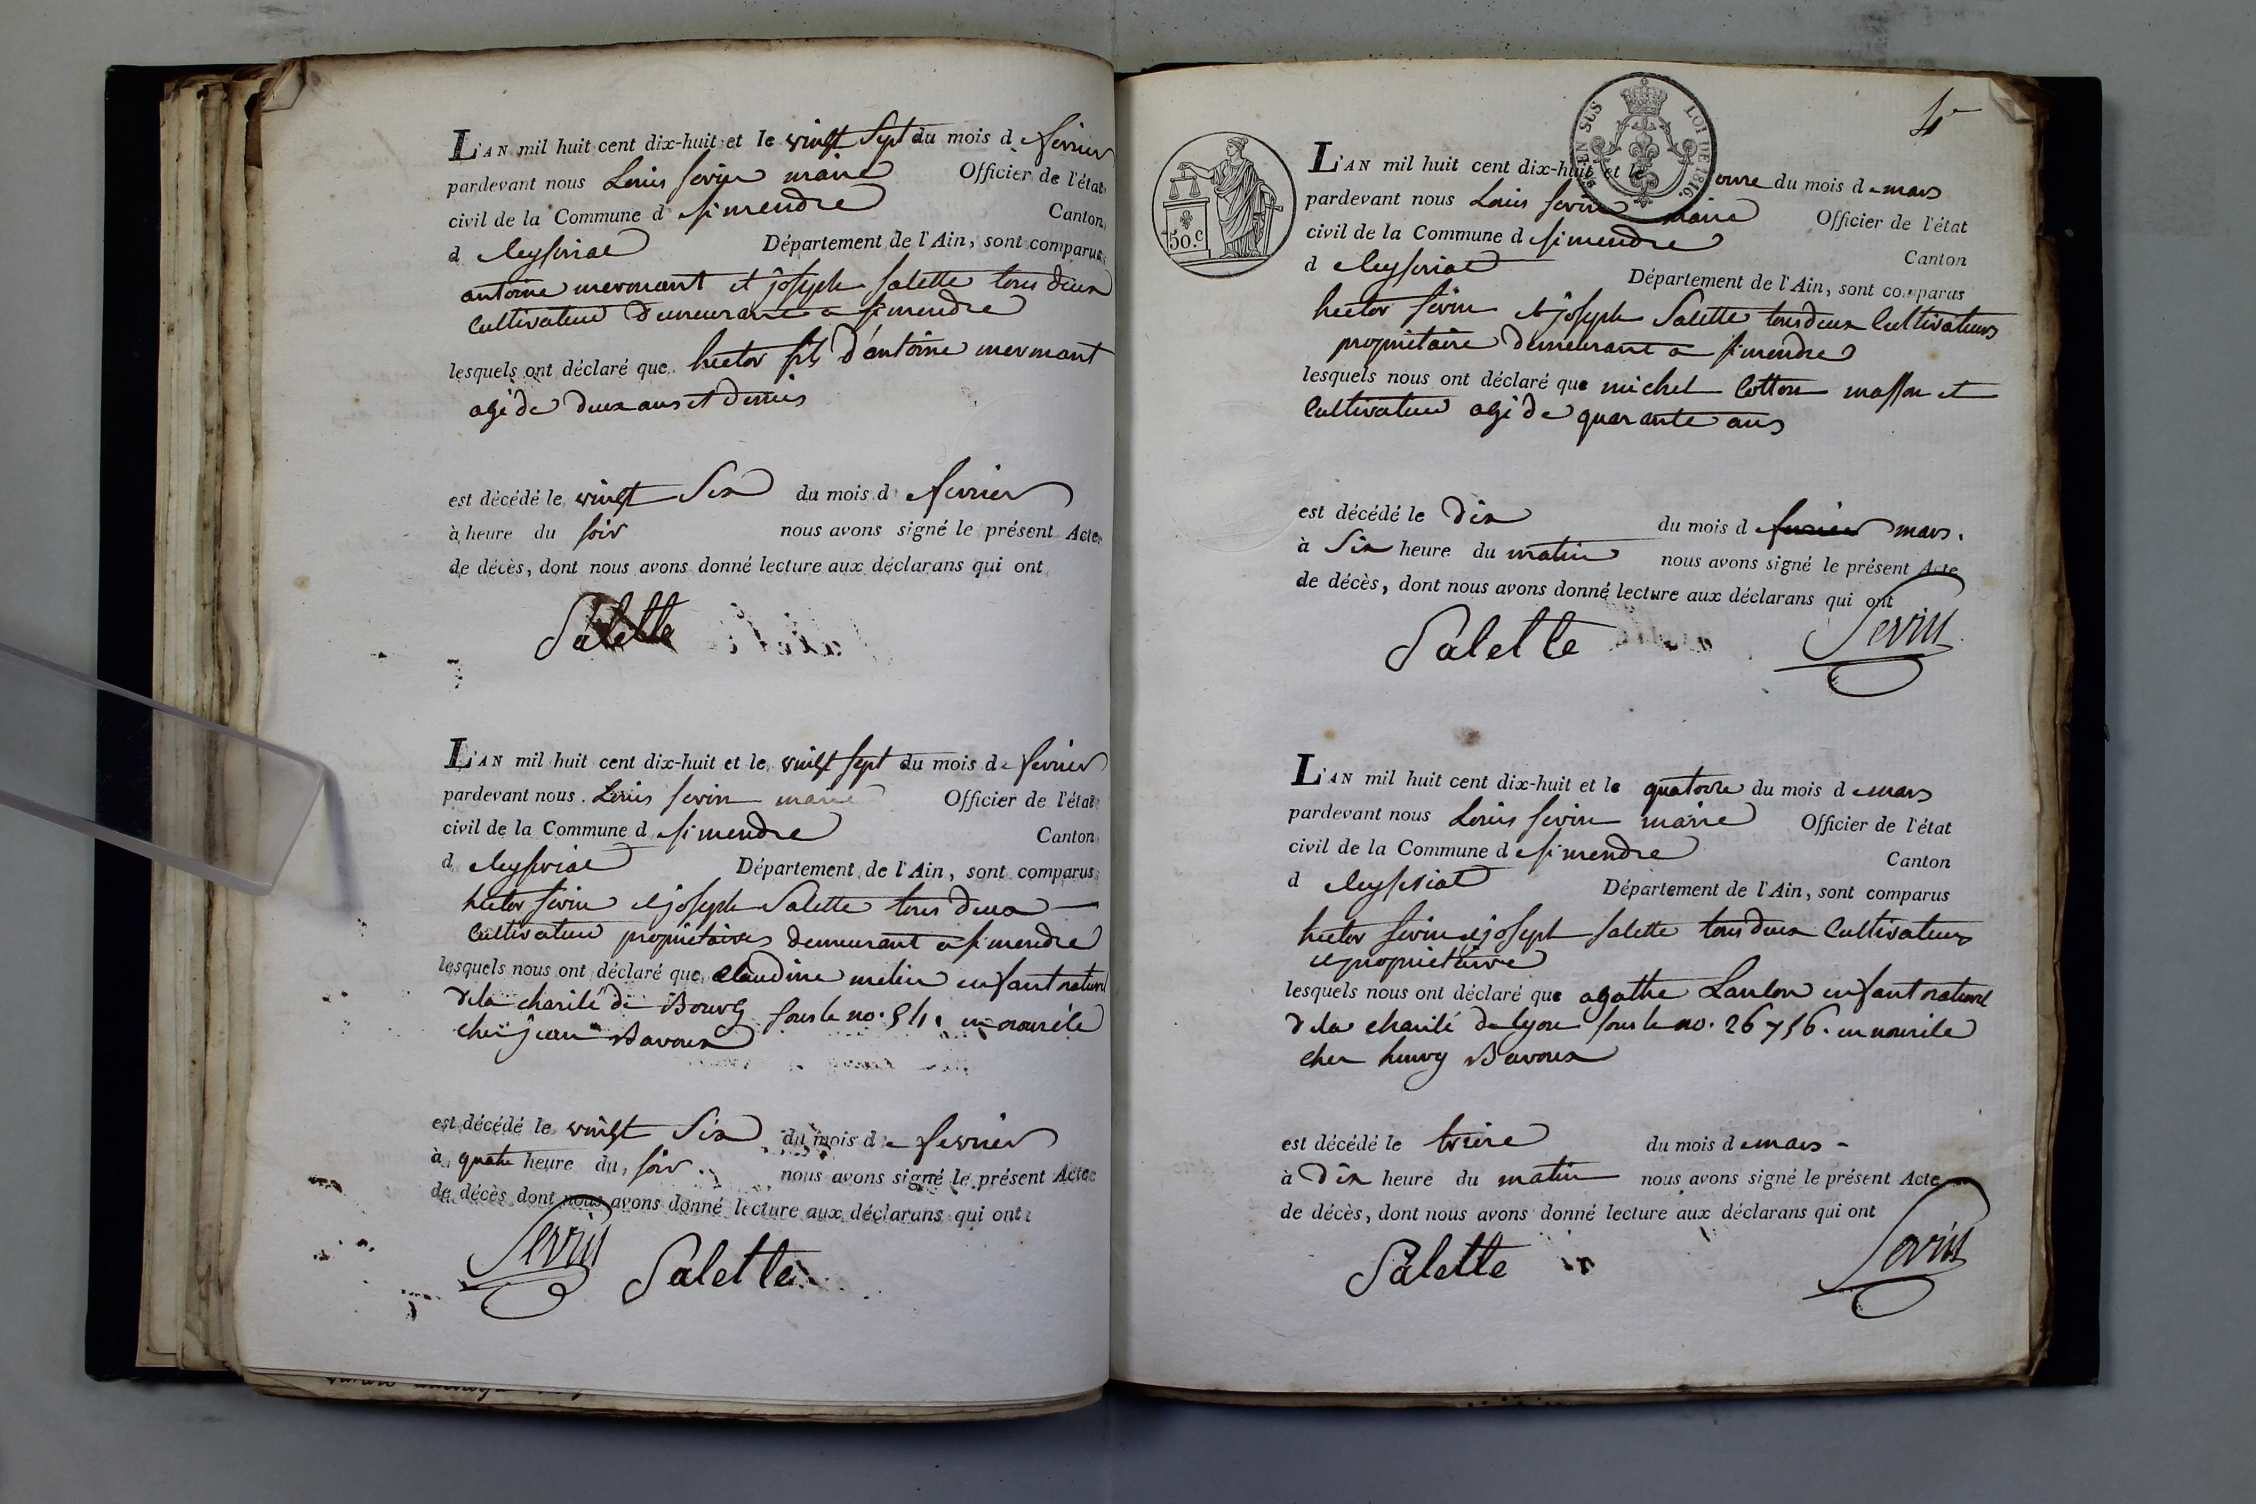 L'AN mil huit cent dix-huit et le vingt sept du mois de fevrier
pardevant nous Louis sevin maire Officier de l'état
civil de la Commune de simendre Canton
de Ceyseriat Département de l'Ain, sont comparus
antoine mermant et joseph salette tous deux
Cultivateur demeurant a simendre
lesquels ont déclaré que hector fils d'antoine mermant
agé de deux ans et demis
est décédé le vingt Six du mois de fevrier
à heure du soir nous avons signé le présent Acte
de décès, dont nous avons donné lecture aux déclarans qui ont
Salette
L'AN mil huit cent dix-huit et le vingt sept du mois de fevrier
pardevant nous Louis sevin maire Officier de l'état
civil de la Commune de simendre Canton
de Ceyseriat Département de l'Ain, sont comparus
hector sevin et joseph Salette tous deux
Cultivateur proprietaires demeurant a simendre
lesquels nous ont déclaré que claudine enfant naturel
de la charité de Bourg sous le no. en nourile
chez jean Bavoux
est décédé le vingt Six du mois de fevrier
à quatre heure du soir. nous avons signé le présent Acte
de décès dont nous avons donné lecture aux déclarans qui ont
Sevin Salette
4e
EN SUS LOI DE 1816.
50.c
L'AN mil huit cent dix-huit et le onze du mois de mars
pardevant nous Louis sevin maire Officier de l'état
civil de la Commune de simendre
Canton
de Ceyseriat Département de l'Ain, sont comparus
hector sevin et joseph Salette tous deux Cultivateurs
proprietaire demeurant a simendre
lesquels nous ont déclaré que michel Cotton masson et
Cultivateur agé de quarante ans
est décédé le dix du mois de fevrier mars.
à Six heure du matin nous avons signé le présent Acte
de décès, dont nous avons donné lecture aux déclarans qui ont
Salette Sevin
L'AN mil huit cent dix-huit et le quatorze du mois de mars
pardevant nous Louis sevin maire Officier de l'état
civil de la Commune de simendre Canton
de Ceyseriat Département de l'Ain, sont comparus
hector sevin et joseph salette tous deux Cultivateurs
et proprietaire
lesquels nous ont déclaré que agathe enfant naturel
de la charité de lyon sous le no. 26756. en nourile
chez henry Bavoux
est décédé le treize du mois de mars
à dix heure du matin nous avons signé le présent Acte
de décès, dont nous avons donné lecture aux déclarans qui ont
Salette Sevin